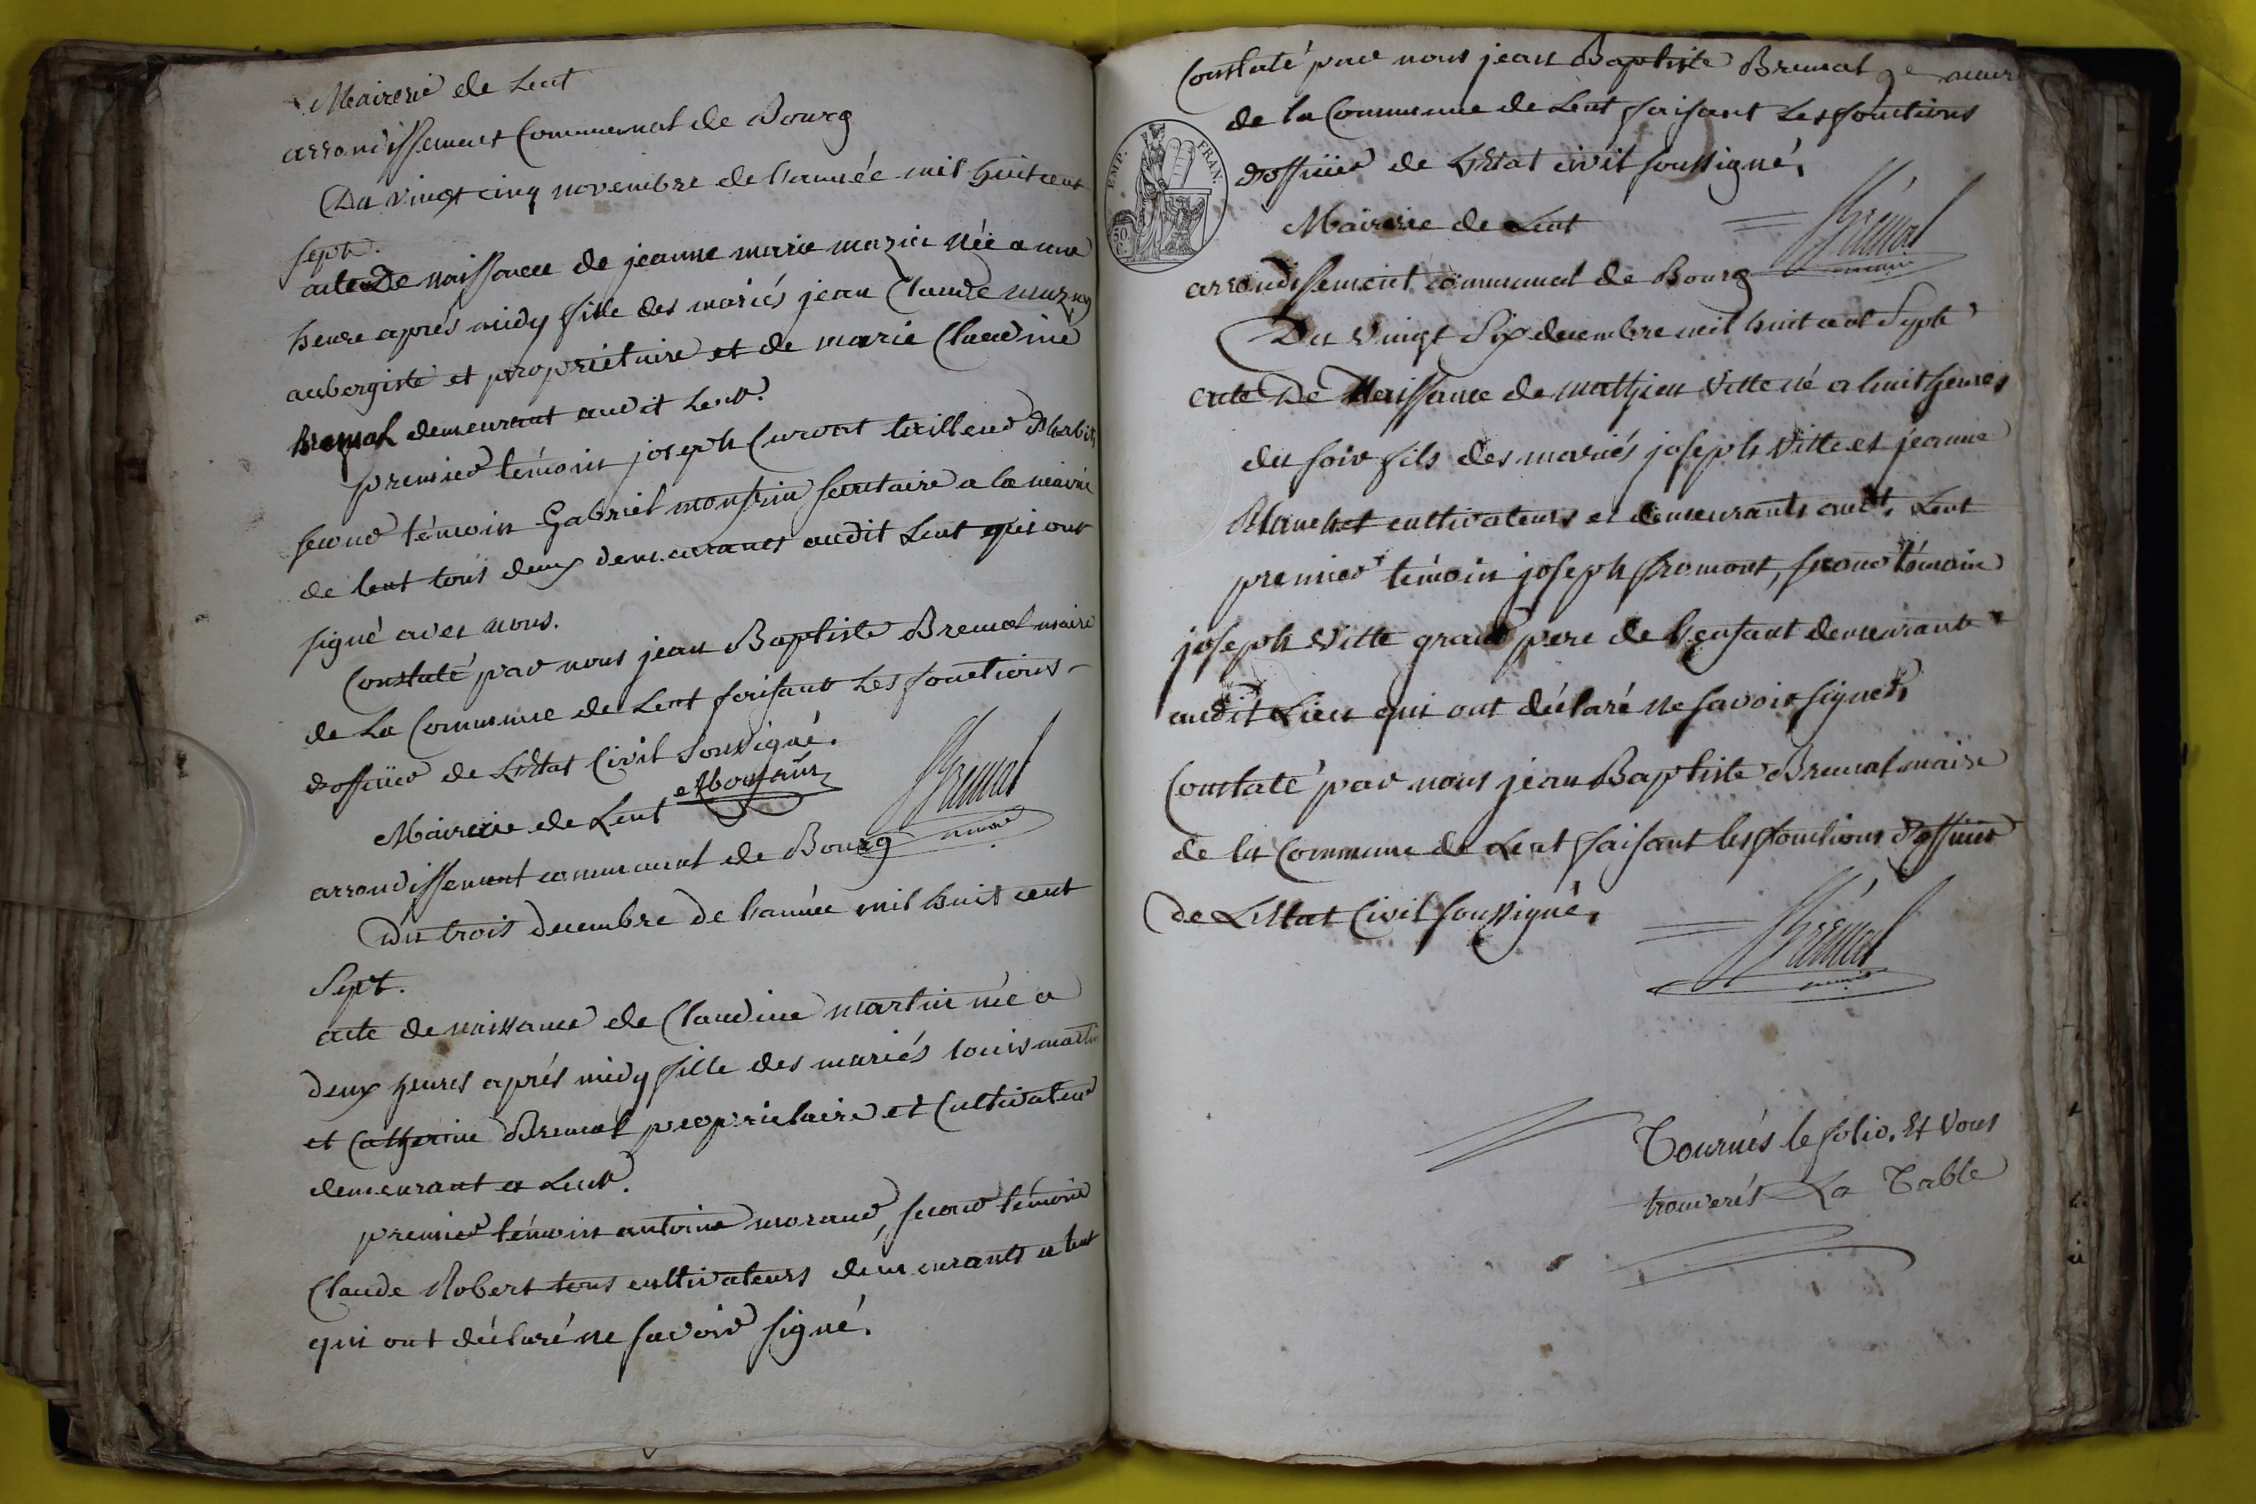 Mairerie de Lent
arrondissement Communal de Bourg
Du vingt cinq novembre de l'année mil huit cent
sept.
acte De naissance de jeanne marie mazuir née a une
heure aprés midy fille des mariés jean Claude
aubergiste et propriétaire et de marie Claudine
Bremal demeurant audit Lent.
premier témoin joseph Curvat tailleur d'habits
second témoin Gabriel monfrin secretaire a la mairie
de lent tous deux demeurants audit Lent qui ont
signé avec nous.
Constaté par nous jean Baptiste Bremal maire
de La Commune de Lent faisant Les fonctions
d'officier de L'Etat Civil soussigné.
Mairerie de Lent
Bremal
maire
arrondissement communal de Bourg
Du trois decembre de l'année mil huit cent
Sept.
acte de naissance de Claudine martin née a
deux heures aprés midy fille des mariés louis martin
et Catherine Bremal propriétaire et Cultivateur
demeurant a Lent.
premier témoin antoine morand, second témoin
Claude Robert tous cultivateurs demeurants a lent
qui ont déclaré ne savoir signé.
Constaté par nous jean Baptiste Bremal maire
de la Commune de Lent faisant Les fonctions
d'officier de L'Etat civil soussigné,
EMP. FRAN.
50
Mairerie de Lent
Bremal
maire
arrondissement communal de Bourg
Du vingt Six decembre mil huit cent Sept
acte De Naissance de mathieu Vitte né a huit heures
du soir fils des mariés joseph Vitte et jeanne
Blanchet cultivateurs et demeurants audt. Lent
premier témoin joseph fromont, second témoin
joseph Vitte grand pere de l'enfant demeurants
audit Lieu qui ont déclaré ne savoir signer,
Constaté par nous jean Baptiste Bremal maire
de la Commune de Lent faisant les fonctions d'officier
de L'Etat Civil soussigné,
Bremal
maire
Tournés le folio, Et vous
trouverés La Table